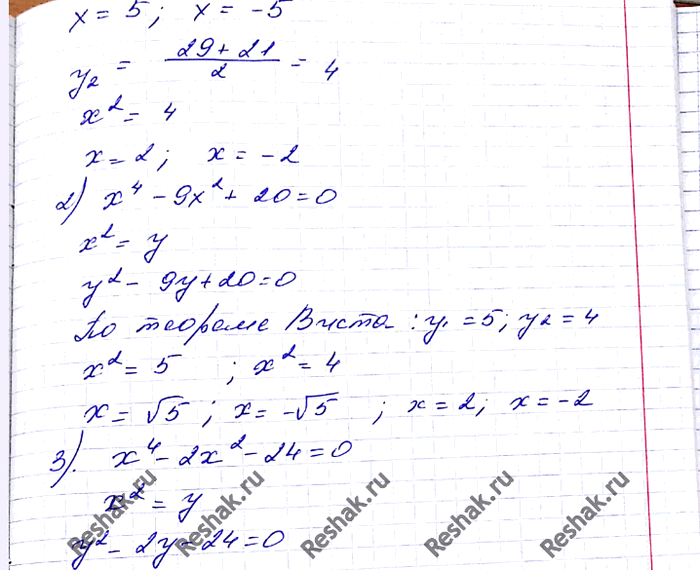 x = 5; x = -5
y₂ = (29 + 21)/2 = 4
x² = 4
x = 2; x = -2
2) x⁴ - 9x² + 20 = 0
x² = y
y² - 9y + 20 = 0
По теореме Виета: y₁ = 5; y₂ = 4
x² = 5 ; x² = 4
x = √5; x = -√5 ; x = 2; x = -2
3). x⁴ - 2x² - 24 = 0
x² = y
y² - 2y - 24 = 0
Reshak.ru Reshak.ru Reshak.ru Reshak.ru Reshak.ru